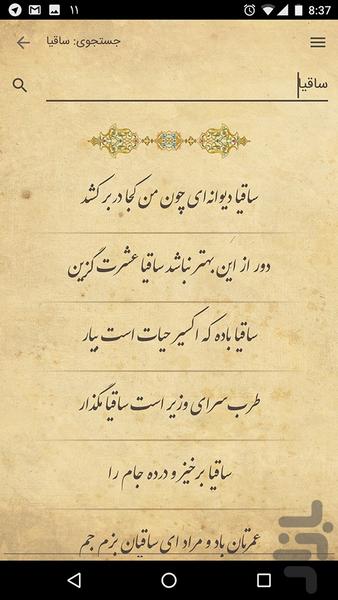 ۱۱ 8:37
جستجوی: ساقیا
ساقیا
ساقیا دیوانه‌ای چون من کجا در بر کشد
دور از این بهتر نباشد ساقیا عشرت گزین
ساقیا باده که اکسیر حیات است بیار
طرب سرای وزیر است ساقیا مگذار
ساقیا برخیز و درده جام را
عمرتان باد و مراد ای ساقیان بزم جم
بازار